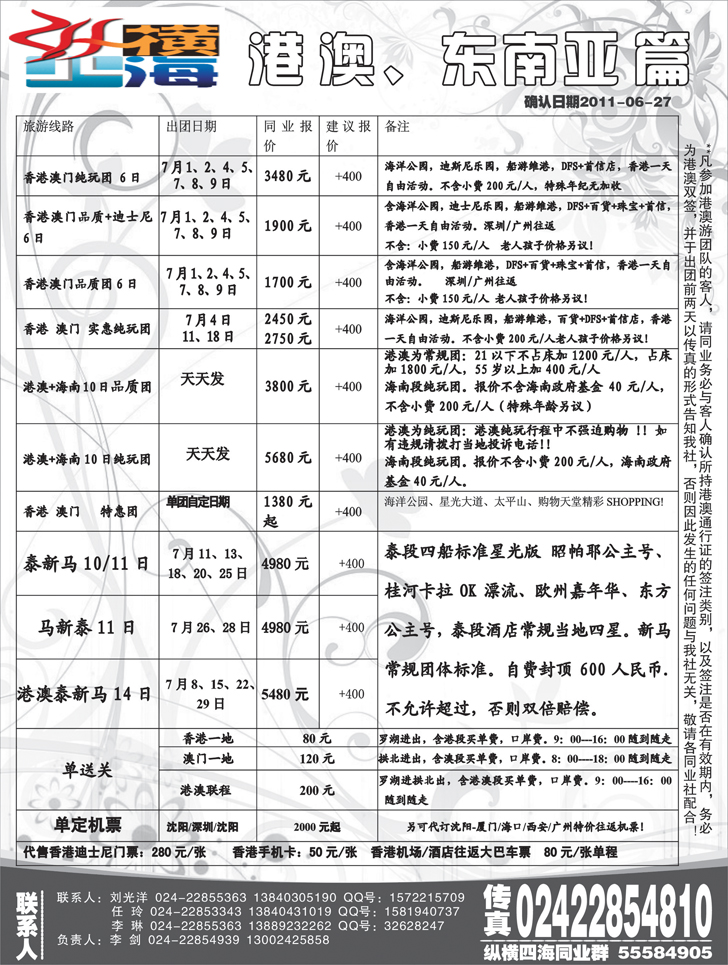 纵横四海
港澳、东南亚篇
确认日期2011-06-27
旅游线路 出团日期 同业报价 建议报价 备注
香港澳门纯玩团 6日 7月1、2、4、5、7、8、9日 3480元 +400
海洋公园，迪斯尼乐园，船游维港，DFS+首信店，香港一天
自由活动。不含小费200元/人，特殊年纪无加收
香港澳门品质+迪士尼6日 7月1、2、4、5、7、8、9日 1900元 +400
含海洋公园，迪士尼乐园，船游维港，DFS+百货+珠宝+首信，
香港一天自由活动。深圳/广州往返
不含：小费150元/人 老人孩子价格另议！
香港澳门品质团6日 7月1、2、4、5、7、8、9日 1700元 +400
含海洋公园，船游维港，DFS+百货+珠宝+首信，香港一天自
由活动。 深圳/广州往返
不含：小费150元/人 老人孩子价格另议！
香港 澳门 实惠纯玩团 7月4日 11、18日 2450元 2750元 +400
海洋公园，迪斯尼乐园，船游维港，百货+DFS+首信店，香港
一天自由活动。不含小费200元/人老人孩子价格另议！
港澳+海南10日品质团 天天发 3800元 +400
港澳为常规团：21以下不占床加1200元/人，占床
加1800元/人，55岁以上加400元/人
海南段纯玩团。报价不含海南政府基金40元/人，
不含小费200元/人（特殊年龄另议）
港澳+海南10日纯玩团 天天发 5680元 +400
港澳为纯玩团：港澳纯玩行程中不强迫购物 !! 如
有违规请拨打当地投诉电话!!
海南段纯玩团。报价不含小费200元/人，海南政府
基金40元/人。
香港 澳门 特惠团 单团自定日期 1380元起 +400
海洋公园、星光大道、太平山、购物天堂精彩SHOPPING!
泰新马10/11日 7月11、13、18、20、25日 4980元 +400
马新泰11日 7月26、28日 4980元 +400
港澳泰新马14日 7月8、15、22、29日 5480元 +400
泰段四船标准星光版 昭帕耶公主号、
桂河卡拉OK漂流、欧州嘉年华、东方
公主号，泰段酒店常规当地四星。新马
常规团体标准。自费封顶600人民币.
不允许超过，否则双倍赔偿。
单送关
香港一地 80元 罗湖进出，含港段买单费，口岸费。9：00---16：00随到随走
澳门一地 120元 拱北进出，含澳段买单费，口岸费。8：00----18：00随到随走
港澳联程 200元 罗湖进拱北出，含港澳段买单费，口岸费。9：00----16：00
随到随走
单定机票 沈阳/深圳/沈阳 2000元起 另可代订沈阳-厦门/海口/西安/广州特价往返机票！
代售香港迪士尼门票：280元/张 香港手机卡：50元/张 香港机场/酒店往返大巴车票 80元/张单程
**凡参加港澳游团队的客人，请同业务必与客人确认所持港澳通行证的签注类别，以及签注是否在有效期内，务必
为港澳双签，并于出团前两天以传真的形式告知我社，否则因此发生的任何问题与我社无关，敬请各同业社配合！
联系人
联系人：刘光洋 024-22855363 13840305190 QQ号：1572215709
任 玲 024-22853343 13840431019 QQ号：1581940737
李 琳 024-22855363 13889232262 QQ号：32628247
负责人：李 剑 024-22854939 13002425858
传真02422854810
纵横四海同业群 55584905